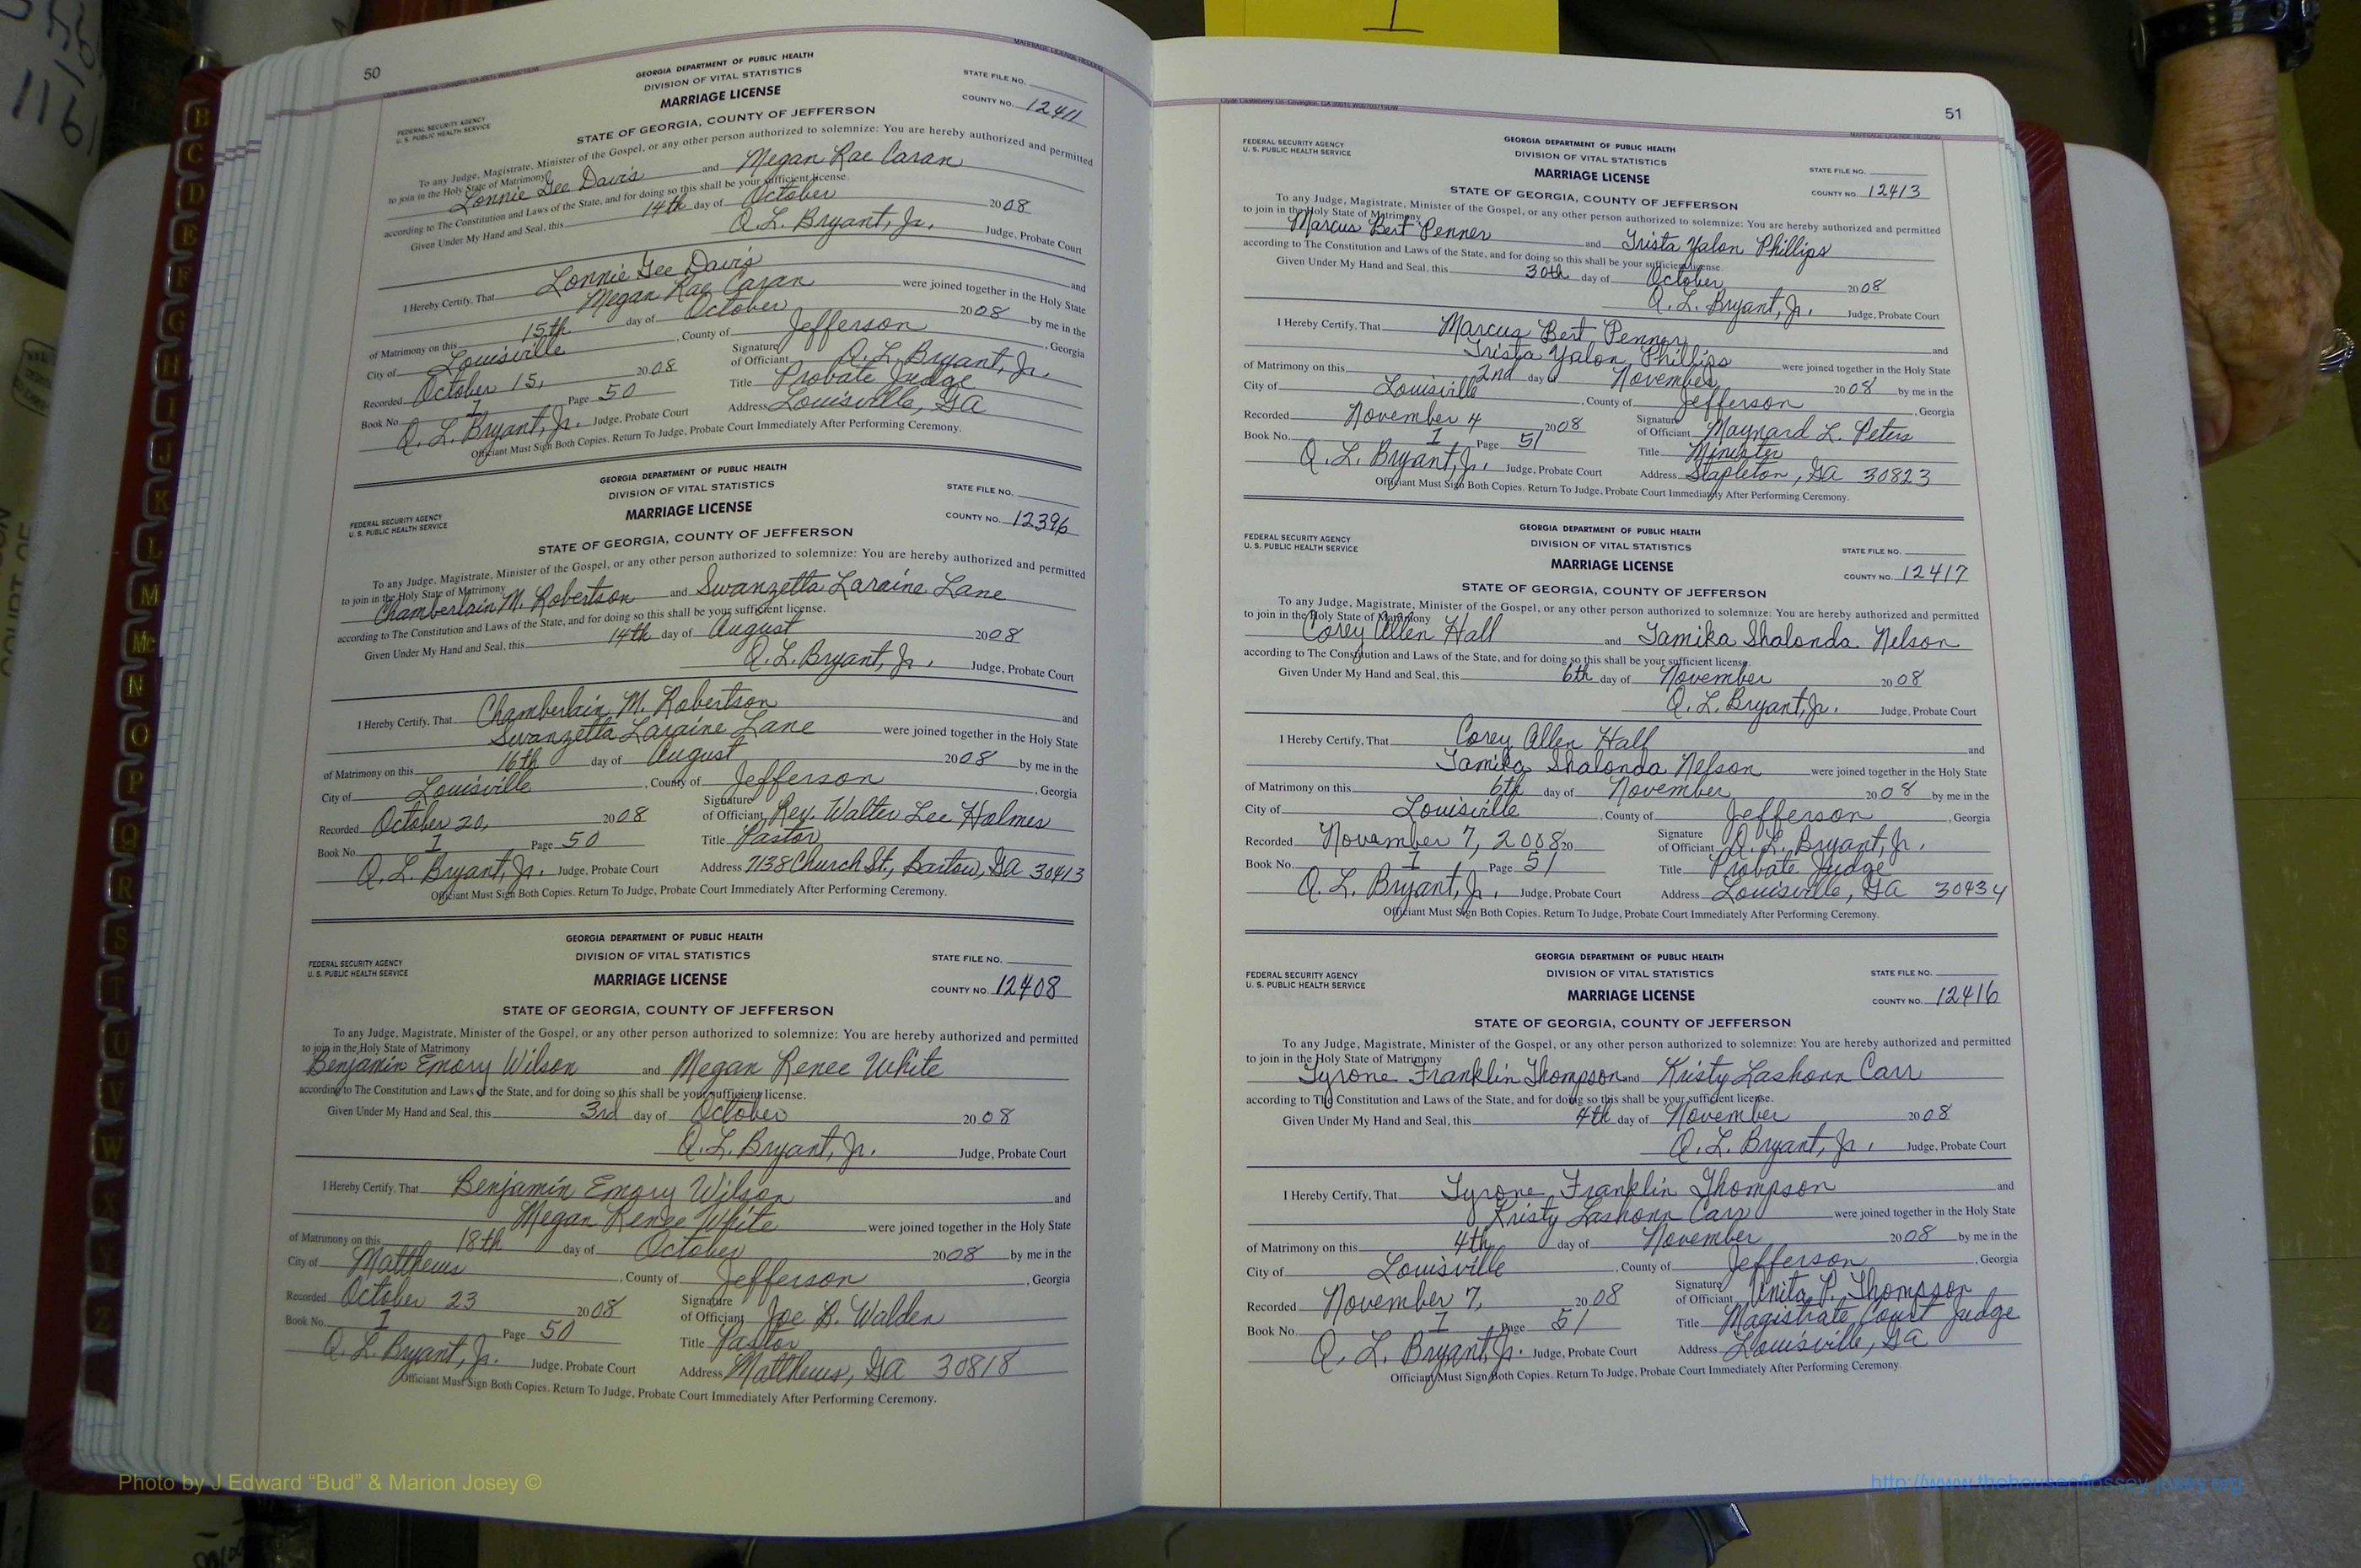 50
MARRIAGE LICENSE RECORD
GEORGIA DEPARTMENT OF PUBLIC HEALTH
DIVISION OF VITAL STATISTICS
MARRIAGE LICENSE
STATE FILE NO.
COUNTY NO. 12411
FEDERAL SECURITY AGENCY
U. S. PUBLIC HEALTH SERVICE
STATE OF GEORGIA, COUNTY OF JEFFERSON
To any Judge, Magistrate, Minister of the Gospel, or any other person authorized to solemnize: You are hereby authorized and permitted
to join in the Holy State of Matrimony
Lonnie Gee Davis and Megan Rae Caran
according to The Constitution and Laws of the State, and for doing so this shall be your sufficient license.
Given Under My Hand and Seal, this 14th day of October 2008
Q. L. Bryant, Jr. Judge, Probate Court
I Hereby Certify, That Lonnie Gee Davis and
Megan Rae Caran were joined together in the Holy State
of Matrimony on this 15th day of October 2008 by me in the
City of Louisville, County of Jefferson, Georgia
Recorded October 15, 2008 Signature of Officiant Q. L. Bryant, Jr.
Book No. 1 Page 50 Title Probate Judge
Q. L. Bryant, Jr. Judge, Probate Court Address Louisville, GA
Officiant Must Sign Both Copies. Return To Judge, Probate Court Immediately After Performing Ceremony.
GEORGIA DEPARTMENT OF PUBLIC HEALTH
DIVISION OF VITAL STATISTICS
MARRIAGE LICENSE
STATE FILE NO.
COUNTY NO. 12396
FEDERAL SECURITY AGENCY
U. S. PUBLIC HEALTH SERVICE
STATE OF GEORGIA, COUNTY OF JEFFERSON
To any Judge, Magistrate, Minister of the Gospel, or any other person authorized to solemnize: You are hereby authorized and permitted
to join in the Holy State of Matrimony
Chamberlain M. Robertson and Swanzetta Laraine Lane
according to The Constitution and Laws of the State, and for doing so this shall be your sufficient license.
Given Under My Hand and Seal, this 14th day of August 2008
Q. L. Bryant, Jr. Judge, Probate Court
I Hereby Certify, That Chamberlain M. Robertson and
Swanzetta Laraine Lane were joined together in the Holy State
of Matrimony on this 16th day of August 2008 by me in the
City of Louisville, County of Jefferson, Georgia
Recorded October 20, 2008 Signature of Officiant Rev. Walter Lee Holmes
Book No. 1 Page 50 Title Pastor
Q. L. Bryant, Jr. Judge, Probate Court Address 7138 Church St., Bartow, GA 30413
Officiant Must Sign Both Copies. Return To Judge, Probate Court Immediately After Performing Ceremony.
GEORGIA DEPARTMENT OF PUBLIC HEALTH
DIVISION OF VITAL STATISTICS
MARRIAGE LICENSE
STATE FILE NO.
COUNTY NO. 12408
FEDERAL SECURITY AGENCY
U. S. PUBLIC HEALTH SERVICE
STATE OF GEORGIA, COUNTY OF JEFFERSON
To any Judge, Magistrate, Minister of the Gospel, or any other person authorized to solemnize: You are hereby authorized and permitted
to join in the Holy State of Matrimony
Benjamin Emory Wilson and Megan Renee White
according to The Constitution and Laws of the State, and for doing so this shall be your sufficient license.
Given Under My Hand and Seal, this 3rd day of October 2008
Q. L. Bryant, Jr. Judge, Probate Court
I Hereby Certify, That Benjamin Emory Wilson and
Megan Renee White were joined together in the Holy State
of Matrimony on this 18th day of October 2008 by me in the
City of Matthews, County of Jefferson, Georgia
Recorded October 23 2008 Signature of Officiant Joe B. Walden
Book No. 1 Page 50 Title Pastor
Q. L. Bryant, Jr. Judge, Probate Court Address Matthews, GA 30818
Officiant Must Sign Both Copies. Return To Judge, Probate Court Immediately After Performing Ceremony.
51
MARRIAGE LICENSE RECORD
GEORGIA DEPARTMENT OF PUBLIC HEALTH
DIVISION OF VITAL STATISTICS
MARRIAGE LICENSE
STATE FILE NO.
COUNTY NO. 12413
FEDERAL SECURITY AGENCY
U. S. PUBLIC HEALTH SERVICE
STATE OF GEORGIA, COUNTY OF JEFFERSON
To any Judge, Magistrate, Minister of the Gospel, or any other person authorized to solemnize: You are hereby authorized and permitted
to join in the Holy State of Matrimony
Marcus Bert Penner and Trista Yalon Phillips
according to The Constitution and Laws of the State, and for doing so this shall be your sufficient license.
Given Under My Hand and Seal, this 30th day of October 2008
Q. L. Bryant, Jr. Judge, Probate Court
I Hereby Certify, That Marcus Bert Penner and
Trista Yalon Phillips were joined together in the Holy State
of Matrimony on this 2nd day of November 2008 by me in the
City of Louisville, County of Jefferson, Georgia
Recorded November 4 2008 Signature of Officiant Maynard L. Peters
Book No. 1 Page 51 Title Minister
Q. L. Bryant, Jr. Judge, Probate Court Address Stapleton, GA 30823
Officiant Must Sign Both Copies. Return To Judge, Probate Court Immediately After Performing Ceremony.
GEORGIA DEPARTMENT OF PUBLIC HEALTH
DIVISION OF VITAL STATISTICS
MARRIAGE LICENSE
STATE FILE NO.
COUNTY NO. 12417
FEDERAL SECURITY AGENCY
U. S. PUBLIC HEALTH SERVICE
STATE OF GEORGIA, COUNTY OF JEFFERSON
To any Judge, Magistrate, Minister of the Gospel, or any other person authorized to solemnize: You are hereby authorized and permitted
to join in the Holy State of Matrimony
Corey Allen Hall and Tamika Shalonda Nelson
according to The Constitution and Laws of the State, and for doing so this shall be your sufficient license.
Given Under My Hand and Seal, this 6th day of November 2008
Q. L. Bryant, Jr. Judge, Probate Court
I Hereby Certify, That Corey Allen Hall and
Tamika Shalonda Nelson were joined together in the Holy State
of Matrimony on this 6th day of November 2008 by me in the
City of Louisville, County of Jefferson, Georgia
Recorded November 7, 2008 20 Signature of Officiant Q. L. Bryant, Jr.
Book No. 1 Page 51 Title Probate Judge
Q. L. Bryant, Jr. Judge, Probate Court Address Louisville, GA 30434
Officiant Must Sign Both Copies. Return To Judge, Probate Court Immediately After Performing Ceremony.
GEORGIA DEPARTMENT OF PUBLIC HEALTH
DIVISION OF VITAL STATISTICS
MARRIAGE LICENSE
STATE FILE NO.
COUNTY NO. 12416
FEDERAL SECURITY AGENCY
U. S. PUBLIC HEALTH SERVICE
STATE OF GEORGIA, COUNTY OF JEFFERSON
To any Judge, Magistrate, Minister of the Gospel, or any other person authorized to solemnize: You are hereby authorized and permitted
to join in the Holy State of Matrimony
Tyrone Franklin Thompson and Kristy Lashonn Carr
according to The Constitution and Laws of the State, and for doing so this shall be your sufficient license.
Given Under My Hand and Seal, this 4th day of November 2008
Q. L. Bryant, Jr. Judge, Probate Court
I Hereby Certify, That Tyrone Franklin Thompson and
Kristy Lashonn Carr were joined together in the Holy State
of Matrimony on this 4th day of November 2008 by me in the
City of Louisville, County of Jefferson, Georgia
Recorded November 7, 2008 Signature of Officiant Anita P. Thompson
Book No. 1 Page 51 Title Magistrate Court Judge
Q. L. Bryant, Jr. Judge, Probate Court Address Louisville, GA
Officiant Must Sign Both Copies. Return To Judge, Probate Court Immediately After Performing Ceremony.
B
C
D
E
F
G
H
I
J
K
L
M
Mc
N
O
P
Q
R
S
T
U
V
W
X
Y
Z
Photo by J Edward “Bud” & Marion Josey ©